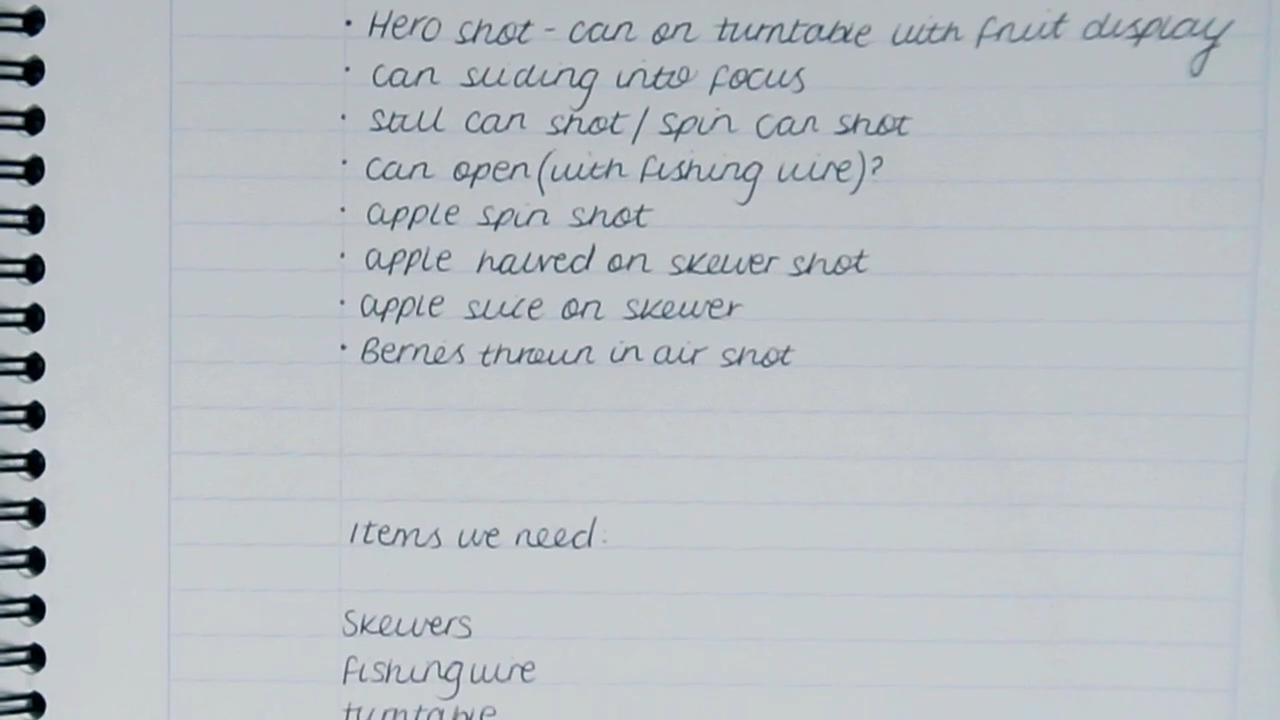 · Hero shot - can on turntable with fruit display
· can sliding into focus
· still can shot / spin can shot
· can open (with fishing wire)?
· apple spin shot
· apple halved on skewer shot
· apple slice on skewer
· Berries thrown in air shot
Items we need:
Skewers
fishing wire
turntable